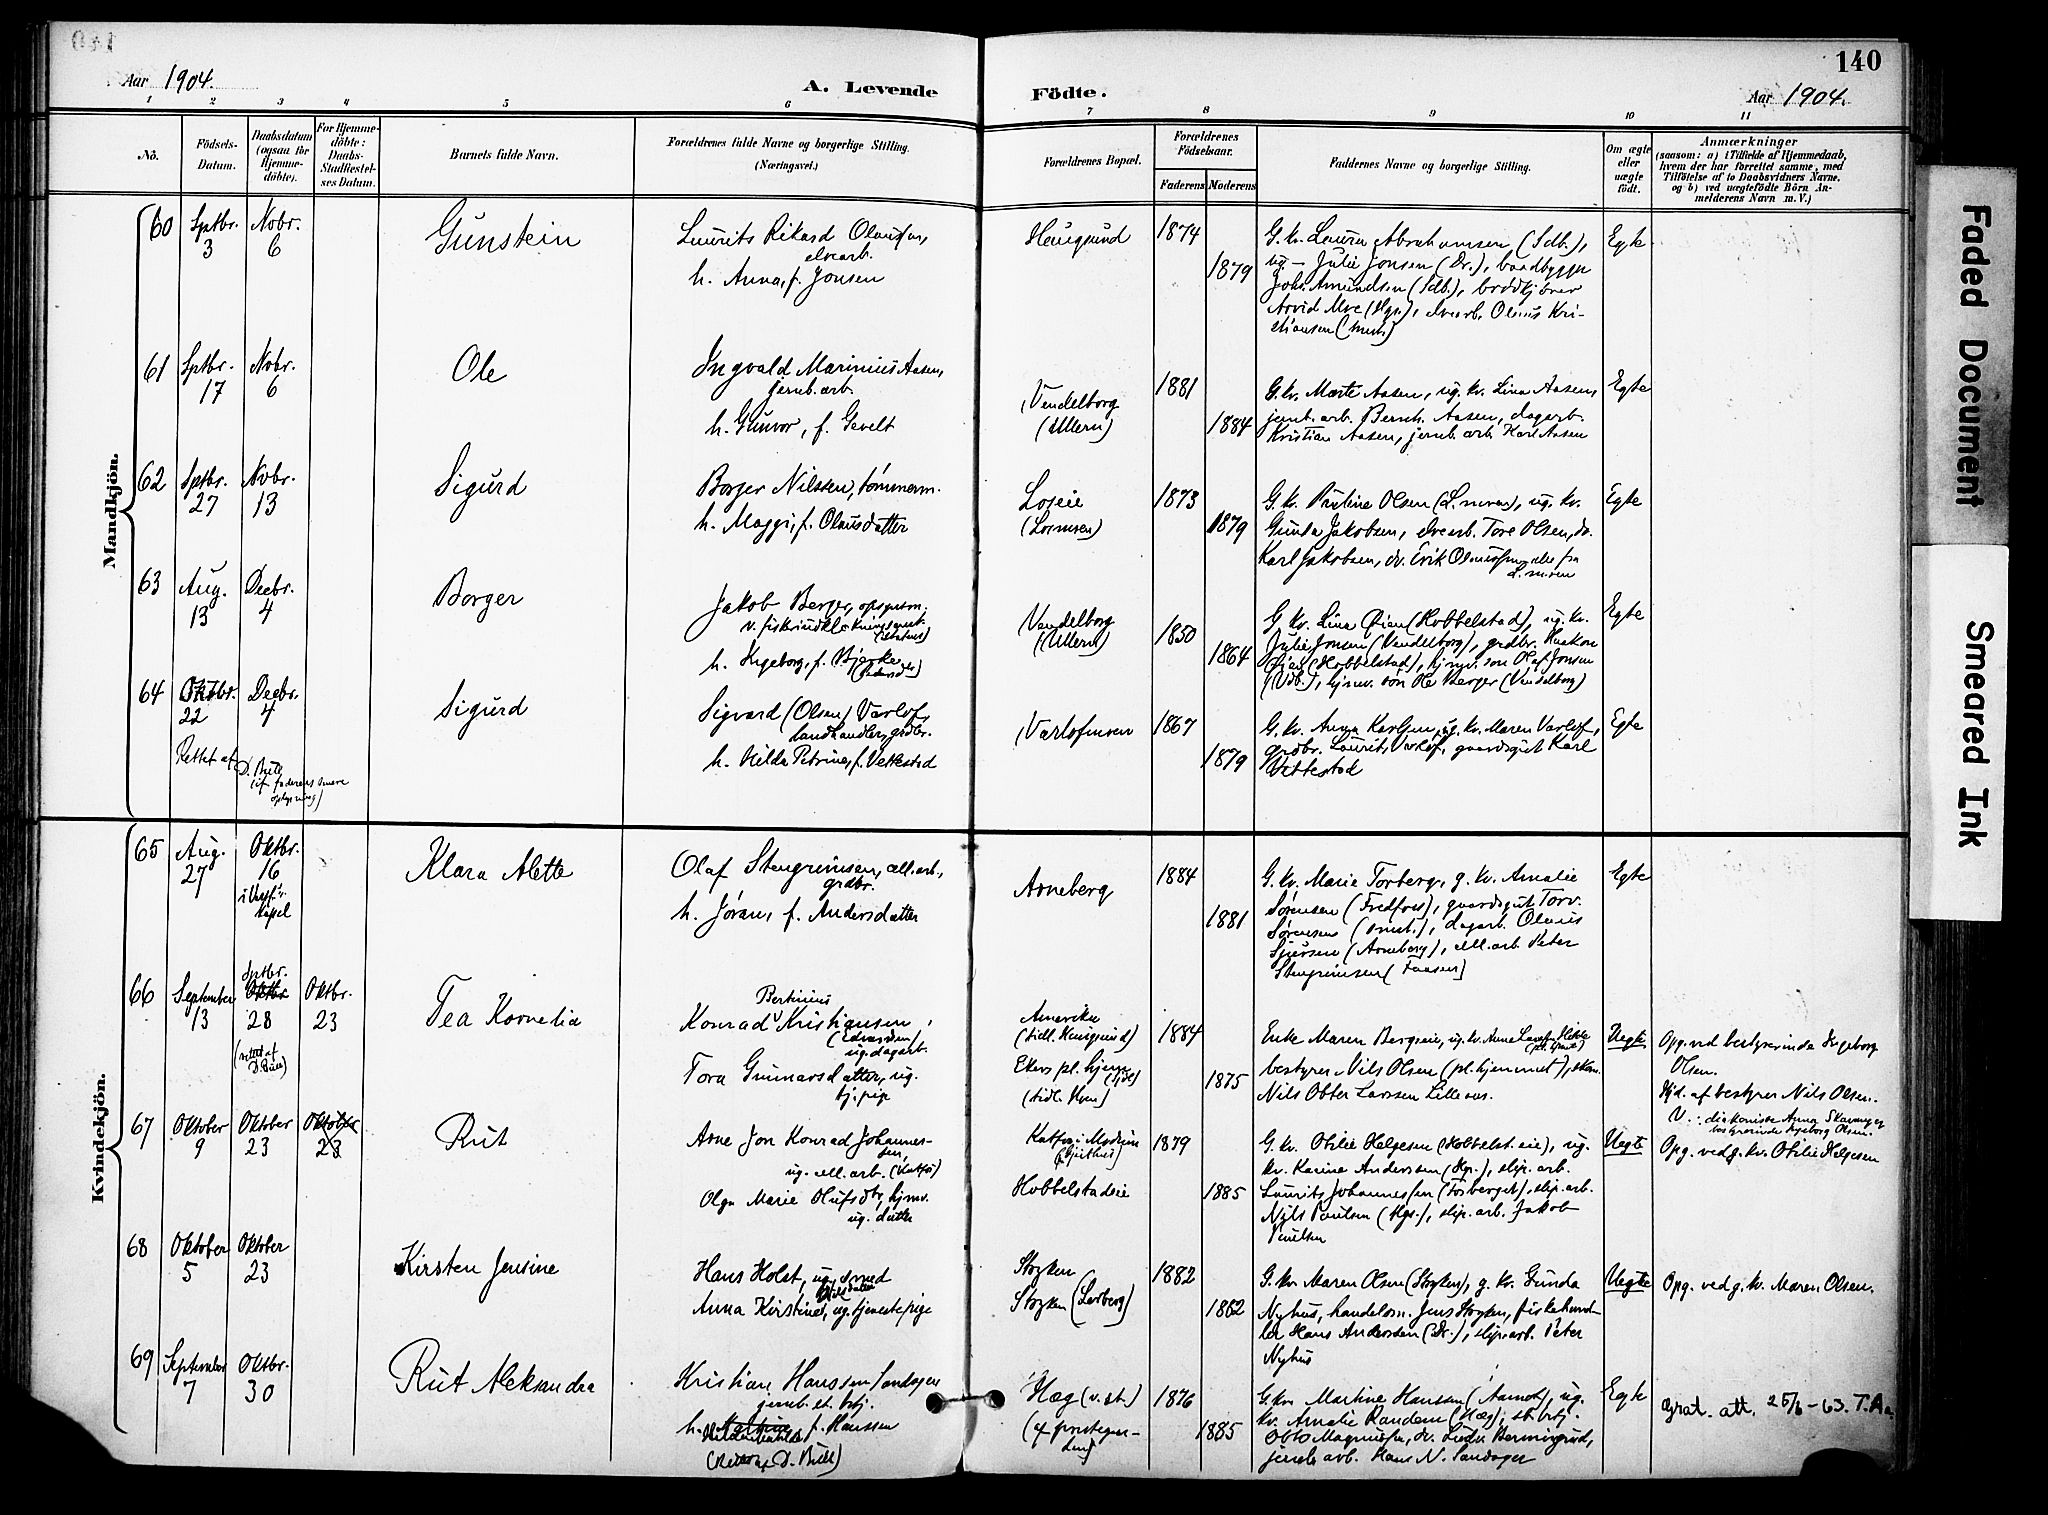 140
Aar 1904.
A. Levende Födte.
Aar 1904.
1 2 3 4 5 6 7 8 9 10 11
No.
Födsels-Datum.
Daabsdatum (ogsaa for Hjemmedöbte).
For Hjemmedöbte: Daabs-Stadfæstelses Datum.
Barnets fulde Navn.
Forældrenes fulde Navne og borgerlige Stilling.
(Næringsvei.)
Forældrenes Bopæl.
Forældrenes Födselsaar.
Faderens Moderens
Faddernes Navne og borgerlige Stilling.
Om ægte eller uægte födt.
Anmærkninger
(saasom: a) i Tilfælde af Hjemmedaab,
hvem der har forrettet samme, med
Tilföielse af to Daabsvidners Navne,
og b) ved uægtefödte Börn An-
melderens Navn m. V.)
Mandkjön.
60 Sptbr. 3 Nobr. 6 Gunstein
Laurits Rikard Olaussen,
elvearb.
h. Anna, f. Jonsen
Haugsund 1874 1879
G. kv. Laura Abrahamsen (Sdb.),
ug — Julie Jonsen (Dr.), baadbygger
Johs. Amundsen (Sdb.), brødkjører
Arvid Moe (Hgs.), elvearb. Olaus Kri-
stiansen
Egte
61 Sptbr. 17 Nobr. 6 Ole
Ingvald Marinius Aasen,
jernb. arb.
h. Gunvor, f. Gevelt
Vendelborg
(Ullern)
1881 1884
G. kv. Marte Aasen, ug. kv. Lina Aasen,
jernb. arb. Bernh. Aasen, dagarb.
Kristian Aasen, jernb. arb. Karl Aasen
Egte
62 Sptbr. 27 Nobr. 13 Sigurd
Borger Nilssen, tømmerm.
h. Maggi, f. Olausdatter
Loseie
(Losmoen)
1873 1879
G. kv. Pauline Olsen (L. moen), ug. kv.
Gunda Jakobsen, elvearb. Tore Olsen, do.
Karl Jakobsen, do. Erik Olaussen, alle fra
L. moen
Egte
63 Aug. 13 Decbr. 4 Borger
Jakob Berger, opsynsm.
v. fiskeiudklækningsanst.
h. Ingeborg, f. Bjerke
Vendelborg
(Ullern)
1850 1864
G. kv. Lina Øien (Hobbelstad), ug. kv.
Julie Jonsen (Vendelborg), grdbr. Haakon
Øien (Hobbelstad), hjmv. søn Olaf Jonsen
(Vdb.), hjmv. søn Ole Berger (Vendelborg)
Egte
64 Oktbr. 22 Decbr. 4 Sigurd
Rettet af D. Bull
(if. faderens senere
oplysning)
Sigvard (Olsen) Varlo,
landhandler, grdbr.
h. Hilda Petrine, f. Vettestad
1867 1879
G. kv. Anna Karlsen, ug. kv. Maren Varlo,
grdbr. Laurits Varlo, gaardsgut Karl
Vettestad
Egte
Kvindekjön.
65 Aug. 27 Oktbr. 16
kapel
Klara Alette
Olaf Stengrimsen, cell. arb.,
grdbr.
h. Jøran, f. Andersdatter
Arneberg 1884 1881
G. kv. Marie Torberg, g. kv. Amalie
Sørensen (Fredfos), gaardsgut Torv.
Sørensen, dagarb. Olaus
Sjursen (Arneberg), cell. arb. Peter
Stengrimsen (Faasen)
Egte
66 September 13 Sptbr. 28 Oktbr. 23
(rettet af
D. Bull)
Tea Kornelia
Bertinius
Konrad Kristiansen,
ug. dagarb.
Tora Gunnarsdatter, ug.
tj. pige
Amerika
(tidl. Haugsund)
Ekers pl. hjem
(tidl. Hem)
1884 1875
Enke Maren Bergseie, ug. kv. Anne
bestyrer Nils Olsen (pl. hjemmet),
Nils Otter Larssen Lilleaas.
Uegte
Opg. ved bestyrerinde Ingeborg
Olsen.
Hjd. af bestyrer Nils Olsen.
V: diakonisse Anna
bestyrerinde Ingeborg Olsen.
67 Oktober 9 Oktober 23 Oktober 23 Rut
Arne Jon Konrad Johannes-
sen,
ug. cell. arb.
Olga Marie Olufsdtr, hjmv.
ug. datter
Hobbelstadeie
1879 1885
G. kv. Otilie Helgesen (Hobbelst. eie), ug.
kv. Karine Anderssen (Hp.), slip. arb.
Laurits Johannessen (Torberget), slip. arb.
Nils Paulsen (Hgs.), slip. arb. Jakob
Paulsen
Uegte
Opg. ved g. kv. Otilie Helgesen
68 Oktober 5 Oktober 23 Kirsten Jensine
Hans Holst, ug. smed
Anna Kirstine, ug. tjenestepige
Stryken
Stryken (Lerberg)
1882 1862
G. kv. Maren Olsen (Stryken), g. kv. Gunda
Nyhus, handelsm. Jens Stryken, fiskehand-
ler Hans Anderssen (Dr.), slip. arb. Peter
Nyhus
Uegte
Opg. ved g. kv. Maren Olsen.
69 September 7 Oktbr. 30 Rut Aleksandra
Kristian Hanssen Sandager
jernb. st. btj.
h. f. Hanssen
(Rettet af D. Bull)
Hæg (v. st.)
1876 1885
G. kv. Martine Hanssen (Aamot), ug.
kv. Amalie Randem (Hæg), st. btj.
Otto Magnussen, do. Ludv.
jernb. arb. Hans N. Sandager
Egte
Grat. att. 25/6-63. T.A.
Faded Document
Smeared Ink